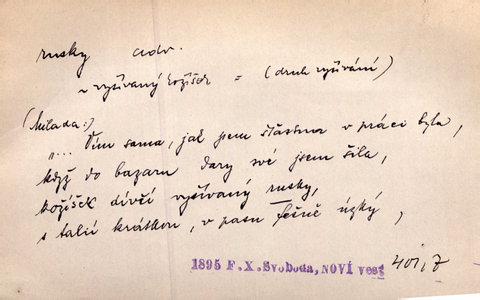 rusky adv.
~ vyšívaný kožíšek = (druh vyšívání)
(Milada:)
„... Vím sama, jak jsem šťastna v práci byla,
když do bazaru dary své jsem šila,
kožíšek dívčí vyšívaný rusky,
s talií krátkou, v pasu fešně úzký,
1895 F. X. Svoboda, NOVÍ vest 401,7